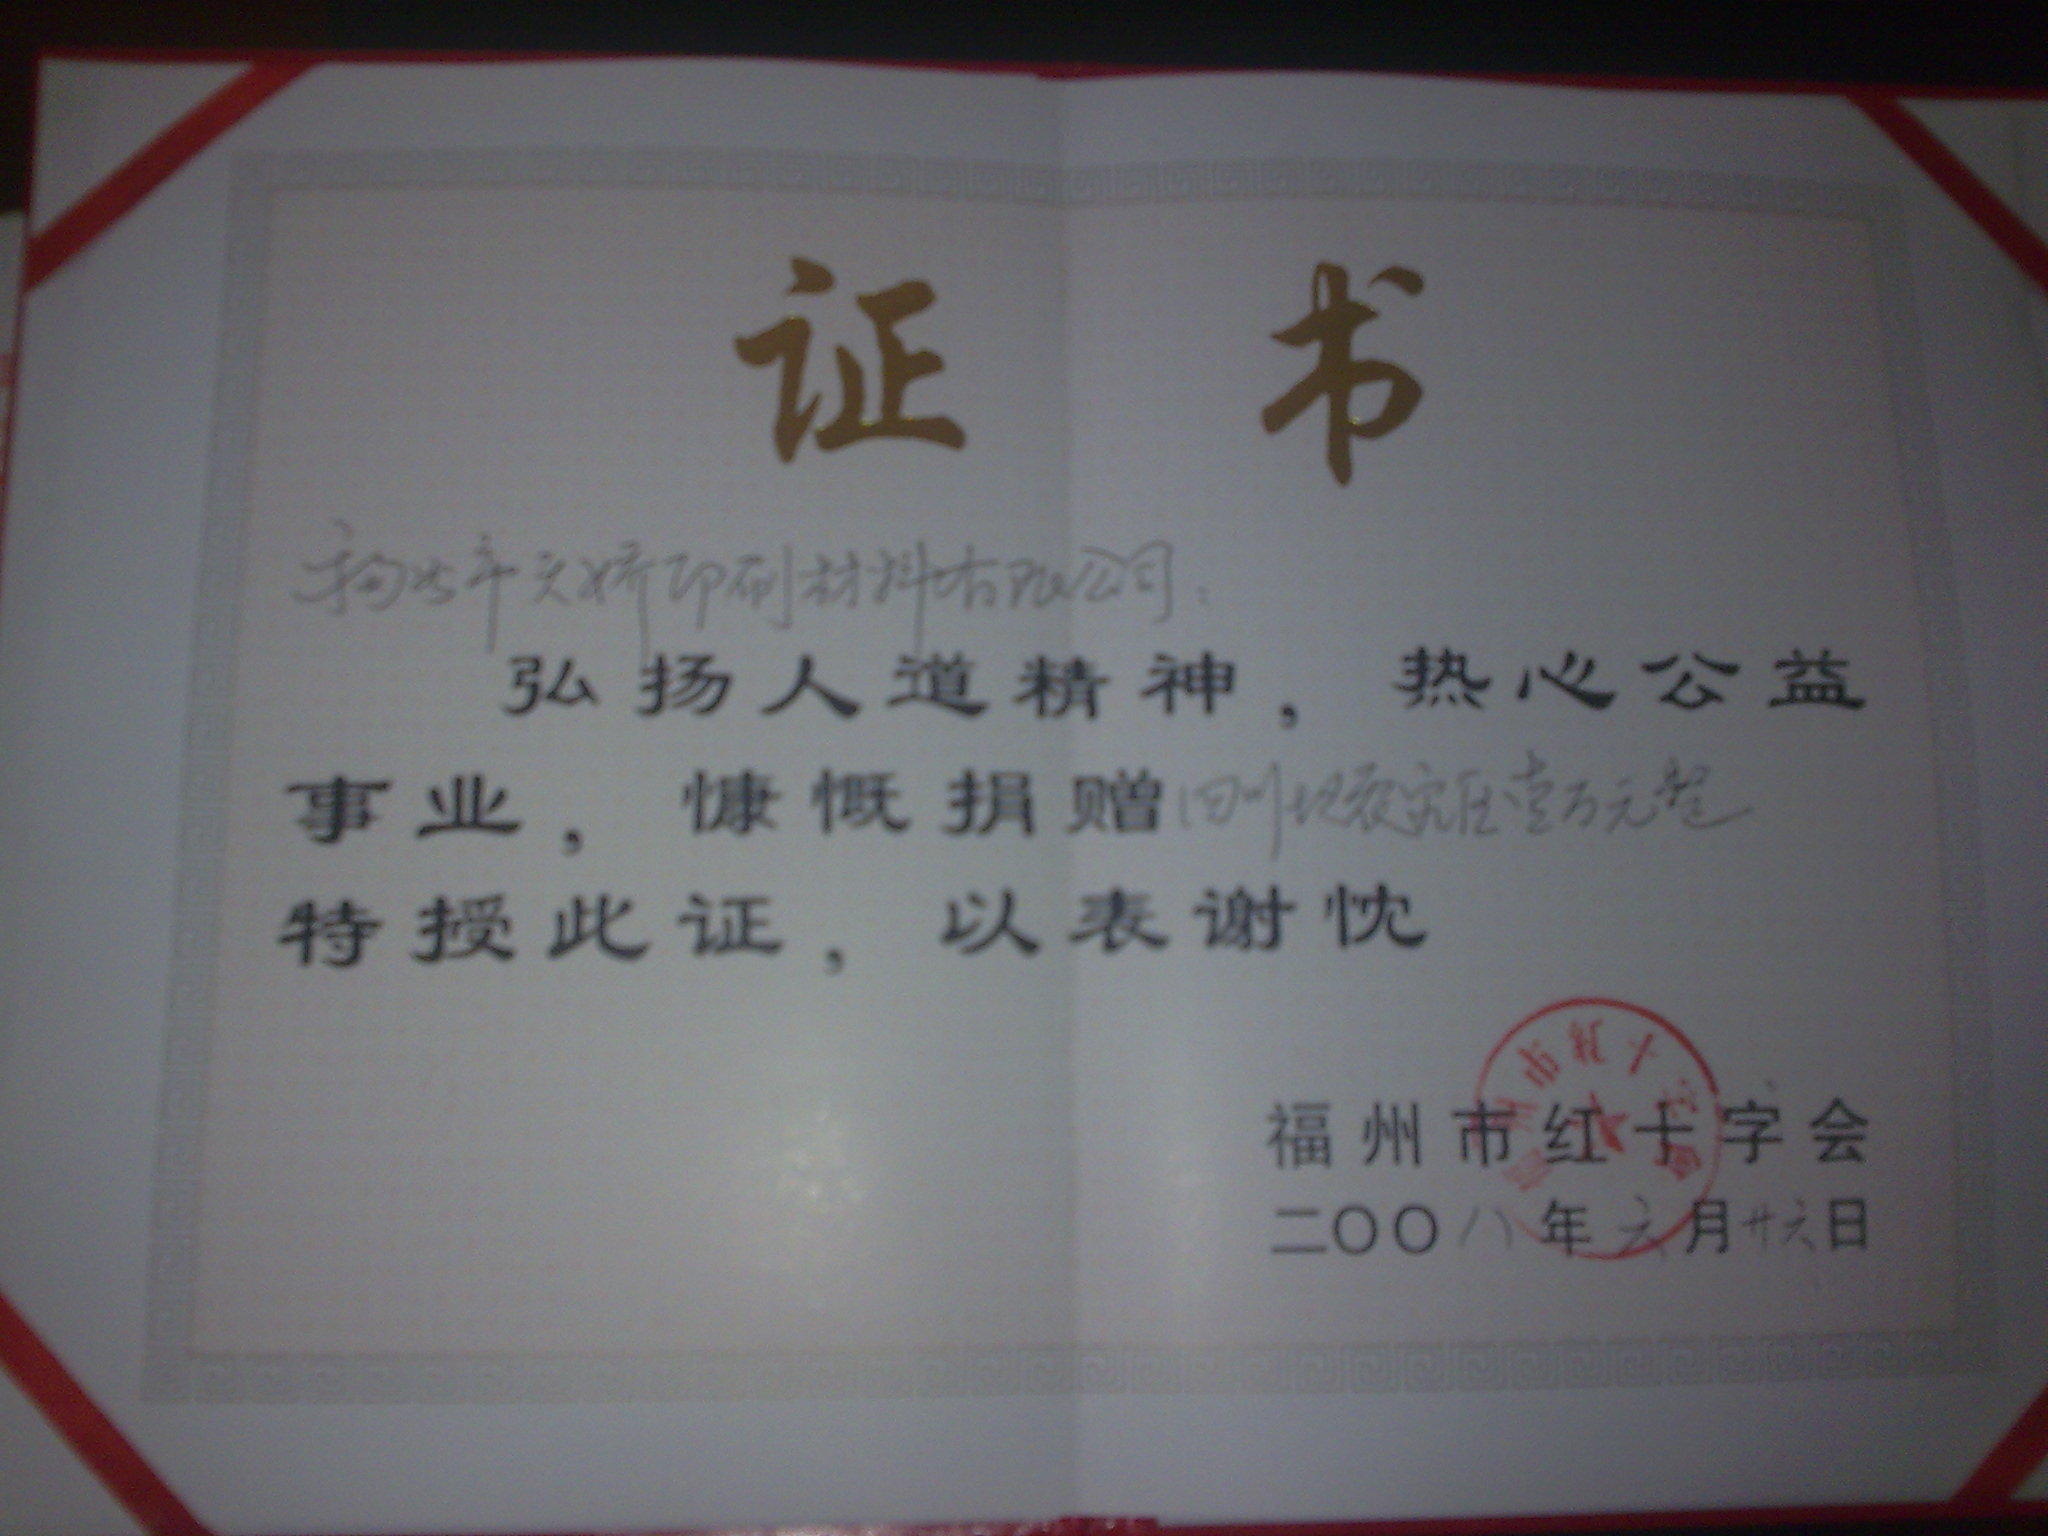 证书
天娇印刷材料有限公司：
弘扬人道精神，热心公益
事业，慷慨捐赠四川地震灾区壹万元整
特授此证，以表谢忱
福州市红十字会
福州市红十字会
二〇〇八年六月廿六日